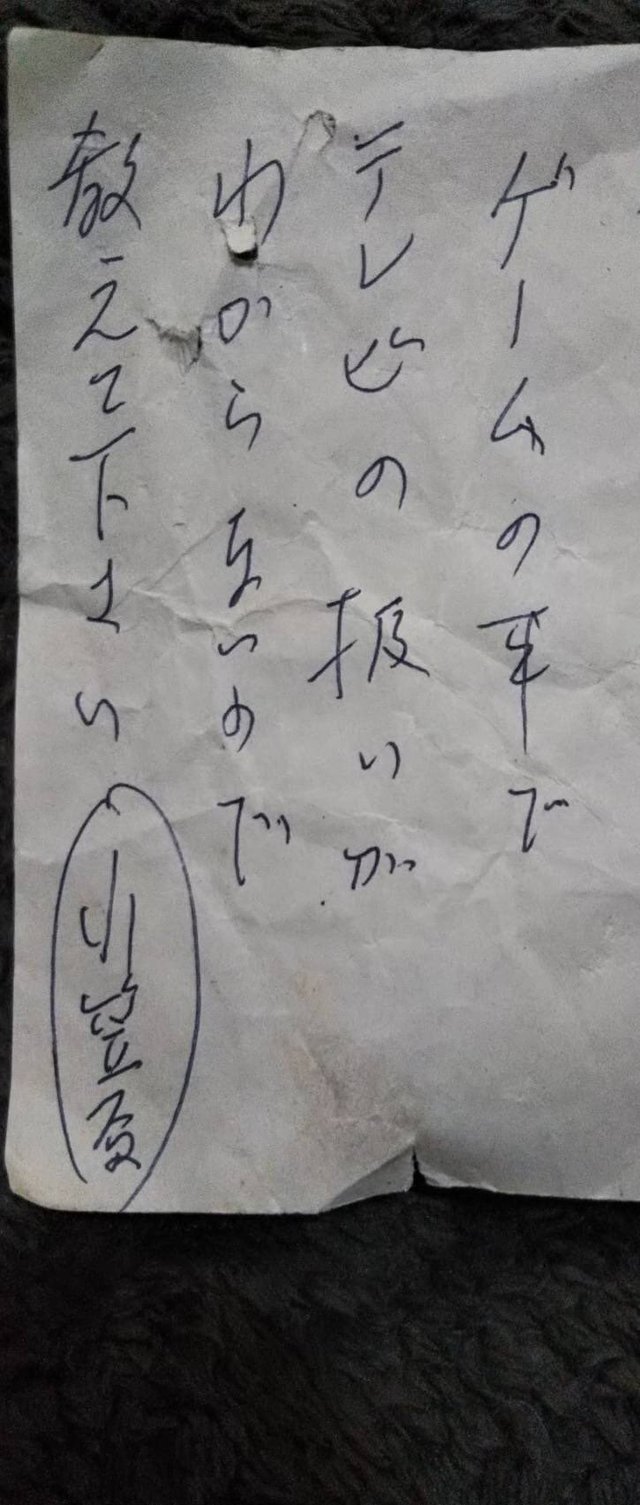 ゲームの事で
テレビの扱いが
わからないので
教えて下さい